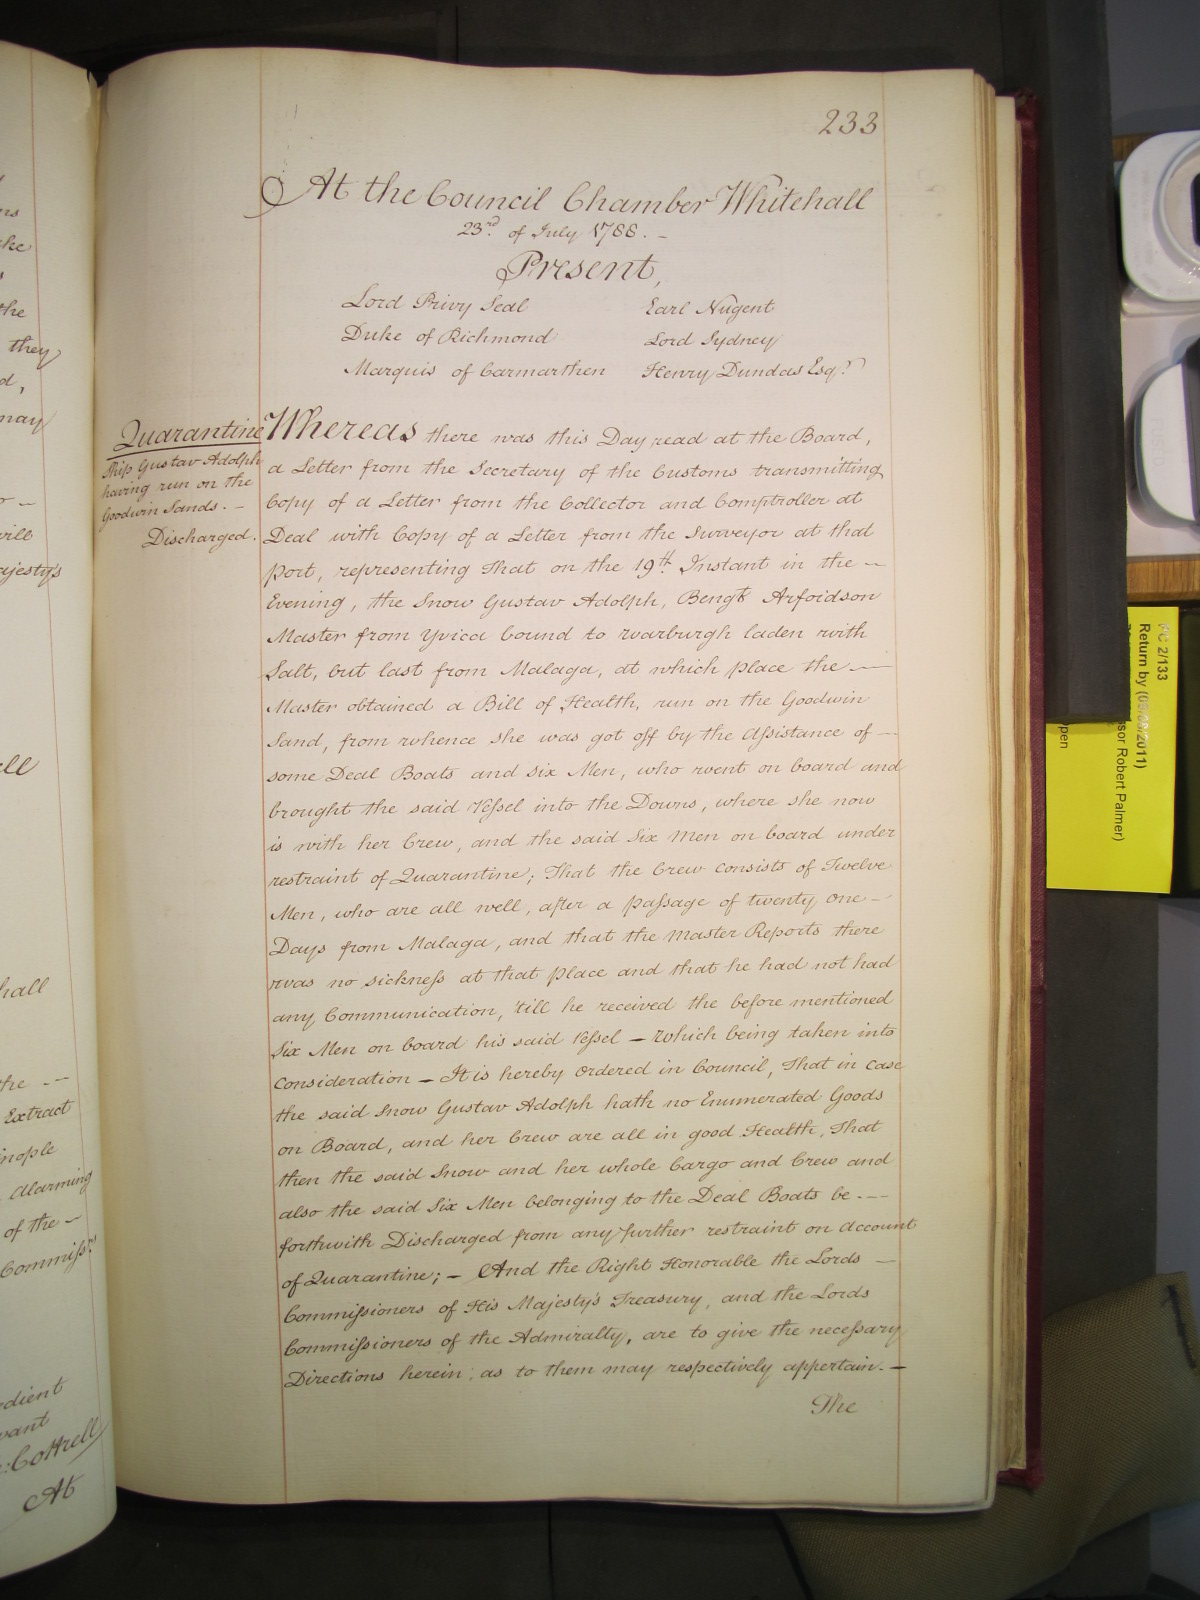 233
At the Council Chamber Whitehall
23rd of July 1788. -
Present,
Lord Privy Seal
Duke of Richmond
Marquis of Carmarthen
Earl Nugent
Lord Sydney
Henry Dundas Esqr.
Quarantine
Ship Gustav Adolph
having run on the
Goodwin Sands. -
Discharged.
Whereas there was this Day read at the Board,
a Letter from the Secretary of the Customs transmitting
Copy of a Letter from the Collector and Comptroller at
Deal with Copy of a Letter from the Surveyor at that
Port, representing that on the 19th. Instant in the -
Evening, the Snow Gustav Adolph, Bengt Arfoidson
Master from Yvica bound to Warburgh laden with
Salt, but last from Malaga, at which Place the -
Master obtained a Bill of Health, run on the Goodwin
Sand, from whence she was got off by the Assistance of -
some Deal Boats and six Men, who went on board and
brought the said Vessel into the Downs, where she now
is with her Crew, and the said Six Men on board under
restraint of Quarantine; That the Crew consists of Twelve
Men, who are all well, after a passage of twenty one -
Days from Malaga, and that the Master Reports there
was no sickness at that Place and that he had not had
any Communication, 'till he received the before mentioned
Six Men on board his said Vessel - Which being taken into
Consideration - It is hereby Ordered in Council, That in case
the said Snow Gustav Adolph hath no Enumerated Goods
on Board, and her Crew are all in good Health, That
then the said Snow and her whole Cargo and Crew and
also the said Six Men belonging to the Deal Boats be -
forthwith Discharged from any further restraint on Account
of Quarantine; - And the Right Honorable the Lords -
Commissioners of His Majesty's Treasury, and the Lords
Commissioners of the Admiralty, are to give the necessary
Directions herein, as to them may respectively appertain. -
The
the
they
may
will
hall
the --
Extract
Alarming
of the -
Commissrs.
Cottrell
At
PC 2/133
Return by (05/05/2011)
sor Robert Palmer)
pen